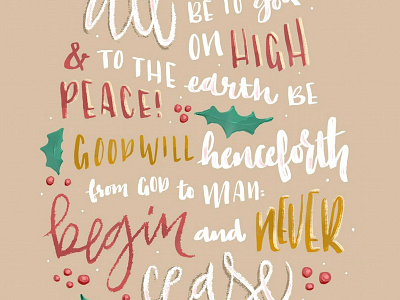 all BE TO GOD
ON HIGH
& TO THE earth BE
PEACE!
GOODWILL henceforth
from GOD to MAN:
begin and NEVER
cease